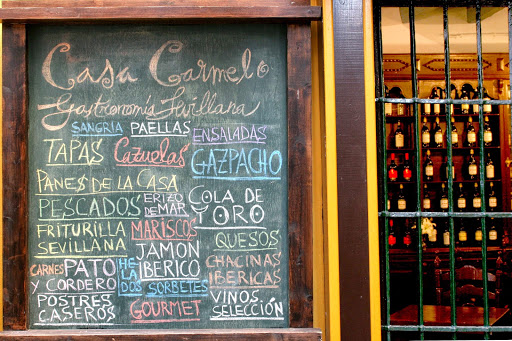 Casa Carmelo
Gastronomía Sevillana
SANGRIA PAELLAS ENSALADAS
TAPAS Cazuelas GAZPACHO
PANES DE LA CASA
PESCADOS ERIZO DE MAR COLA DE TORO
FRITURILLA SEVILLANA MARISCOS
QUESOS
CARNES PATO Y CORDERO JAMÓN IBERICO CHACINAS IBERICAS
HELADOS SORBETES
POSTRES CASEROS GOURMET VINOS SELECCIÓN